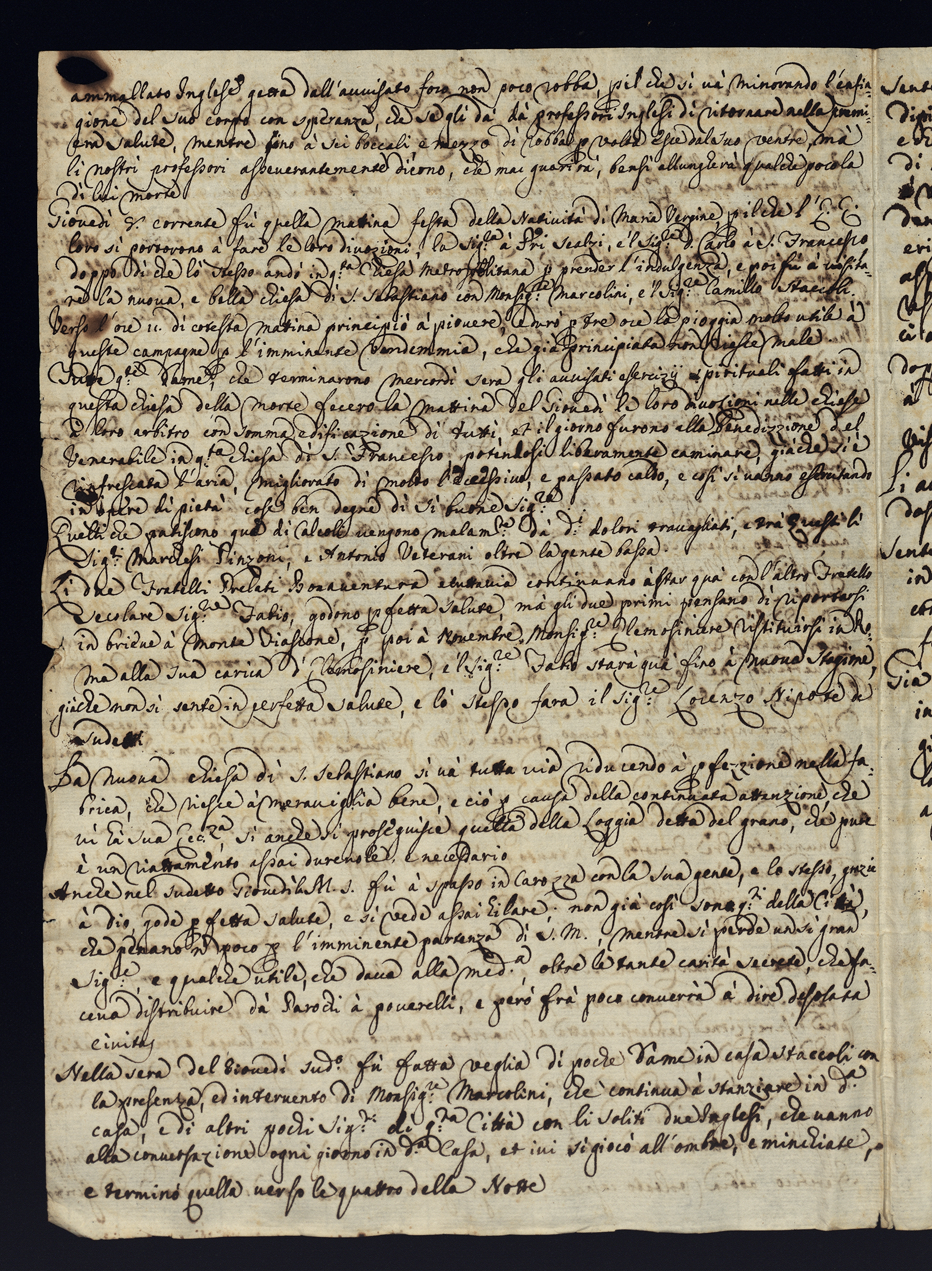 ammallato Inglese getta dall'avvisato foro non poco robba, pil che si và minorando l'enfia-
gione del suo corpo con speranza, che se gli dà dà professori Inglesi di ritornare nella
salute, mentre sino à sei boccali e mezzo di robba p volta esce dal suo ventre, mà
li nostri professori asseverantemente dicono, che mai guarirà, bensi allungherà qualche pocola
di lui morte
Giovedì 8. corrente fù quella mattina festa della Natività di Maria Vergine, pilche l'E.E.
loro si portorono à fare le loro divozioni, la Sig.ra à PPri Scalzi, e'l Sig.re D. Carlo à S. Francesco
doppo di che lo stesso andò in q.ta Chiesa Metropolitana p prender l'indulgenza, e poi fù à visita-
re la nuova, e bella chiesa di S. Sebastiano con Monsig.re Marcolini, e'l Sig.re Camillo Staccoli.
Verso l'ore 11. di cotesta matina principiò à piovere, e durò p tre ore la pioggia molto utile à
queste campagne p l'imminente vendemmia, che già principiata non riesce male
Tutte q.te Dame, che terminarono mercordì sera gli avvisati esercizij spirituali fatti in
questa chiesa della morte fecero la mattina del Giovedì le loro divozioni nelle chiese
à loro arbitro con somma edificazione di tutti, et il giorno furono alla Benedizzione del
Venerabile in q.ta chiesa di S. Francesco, potendosi liberamente caminare, giache si è
rinfrescata l'aria, e migliorato di molto l'eccessivo, e passato caldo, e cosi si vanno esercitando
in opere di pietà cose ben degne di si buone Sig.re
Quelli che patiscono quà di Calcoli vengono malam.te dà d.i dolori travagliati, e trà questi li
Sig.ri Marchesi Pinzoni, e Antonio Veterani oltre la gente bassa.
Li due Fratelli Prelati Bonaventura e tuttavia continuano à star quà con l'altro Fratello
secolare Sig.re Fabio, godono pfetta salute, mà gli due primi pensano di riportarsi
in brieve à Monte Fiascone, p poi à Novembre Monsig.re Elemosiniere restituirsi in Ro-
ma alla sua carica d'Elemosiniere, e'l Sig.re Fabio starà quà fino à nuova stagione,
giache non si sente in perfetta salute, e lo stesso farà il Sig.re Lorenzo Nipote de
sudetti
La nuova chiesa di S. Sebastiano si và tutta via riducendo à pfezzione nella fa-
brica, che riesce à meraviglia bene, e ciò p causa della continuata attenzione, che
vi hà sua Ecc.za si anche si proseguisce quella della Loggia detta del grano, che pure
è un riattamento assai durevole e necessario
Anche nel sudetto Giovedì la M. S. fù à spasso in Carozza con la sua gente, e lo stesso, grazie
à dio, gode pfetta salute, e si vede assai hilare; non già cosi sono q.ti della Città,
che penano nõ poco p l'imminente partenza di S. M., mentre si perde un si gran
Sig.re, e qualche utile, che dava alla med.a oltre le tante carità secrete, che fa-
ceva distribuire dà Parochi à poverelli, e però frà poco converrà à dire desolata
civitas
Nella sera del Giovedì sud.o fù fatta veglia di poche Dame in casa Staccoli con
la presenza, ed intervento di Monsig.re Marcolini, che continua à stanziare in d.a
casa, e di altri pochi Sig.ri di q.ta Città con li soliti due Inglesi, che vanno
alla conversazione ogni giorno in d.a Casa, et ivi si giocò all'ombre, e minchiate,
e terminò quella verso le quattro della Notte